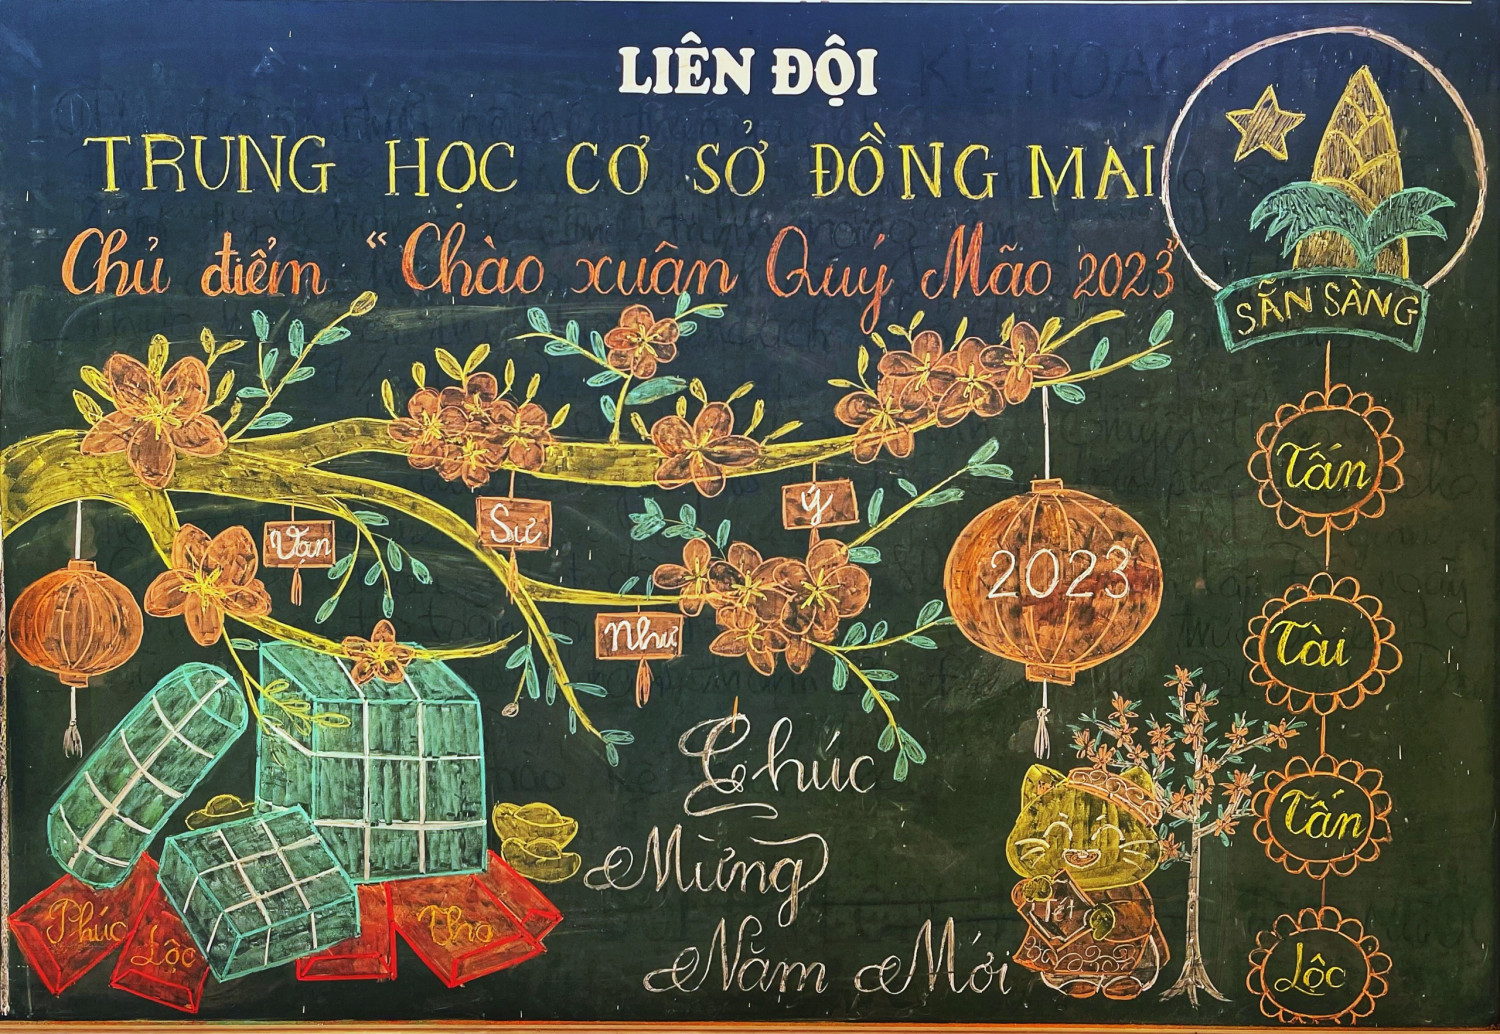 LIÊN ĐỘI
TRUNG HỌC CƠ SỞ ĐỒNG MAI
Chủ điểm “Chào xuân Quý Mão 2023”
SẴN SÀNG
Tấn
Tài
Tấn
Lộc
Vạn
Sự
Như
ý
2023
Chúc
Mừng
Năm Mới
Tết
Phúc
Lộc
Thọ